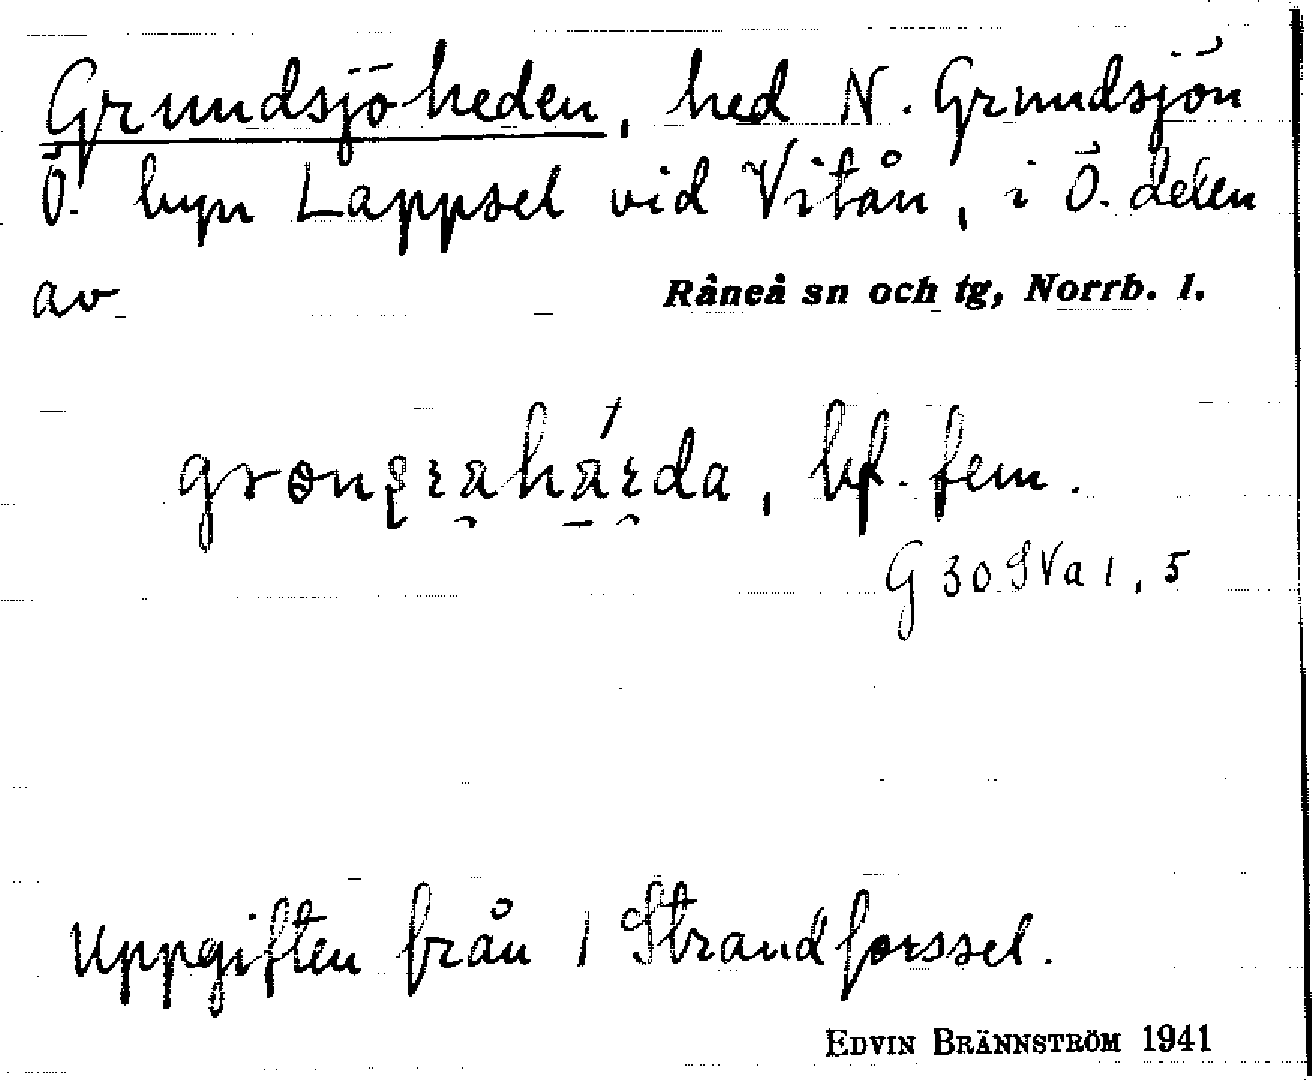 Grundsjöheden, hed N. Grundsjön
Ö. byn Lappsel vid Vitån, i Ö. delen
av Råneå sn och tg, Norrb. l.
bf. fem.
G 30 SVa 1, 5
Uppgiften från 1 Strandforssel.
EDVIN BRÄNNSTRÖM 1941